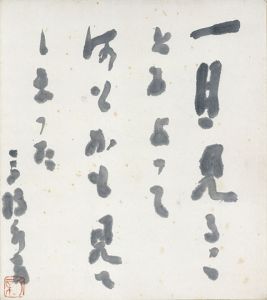 一目見るこ
とによって
何もかも見て
しまった